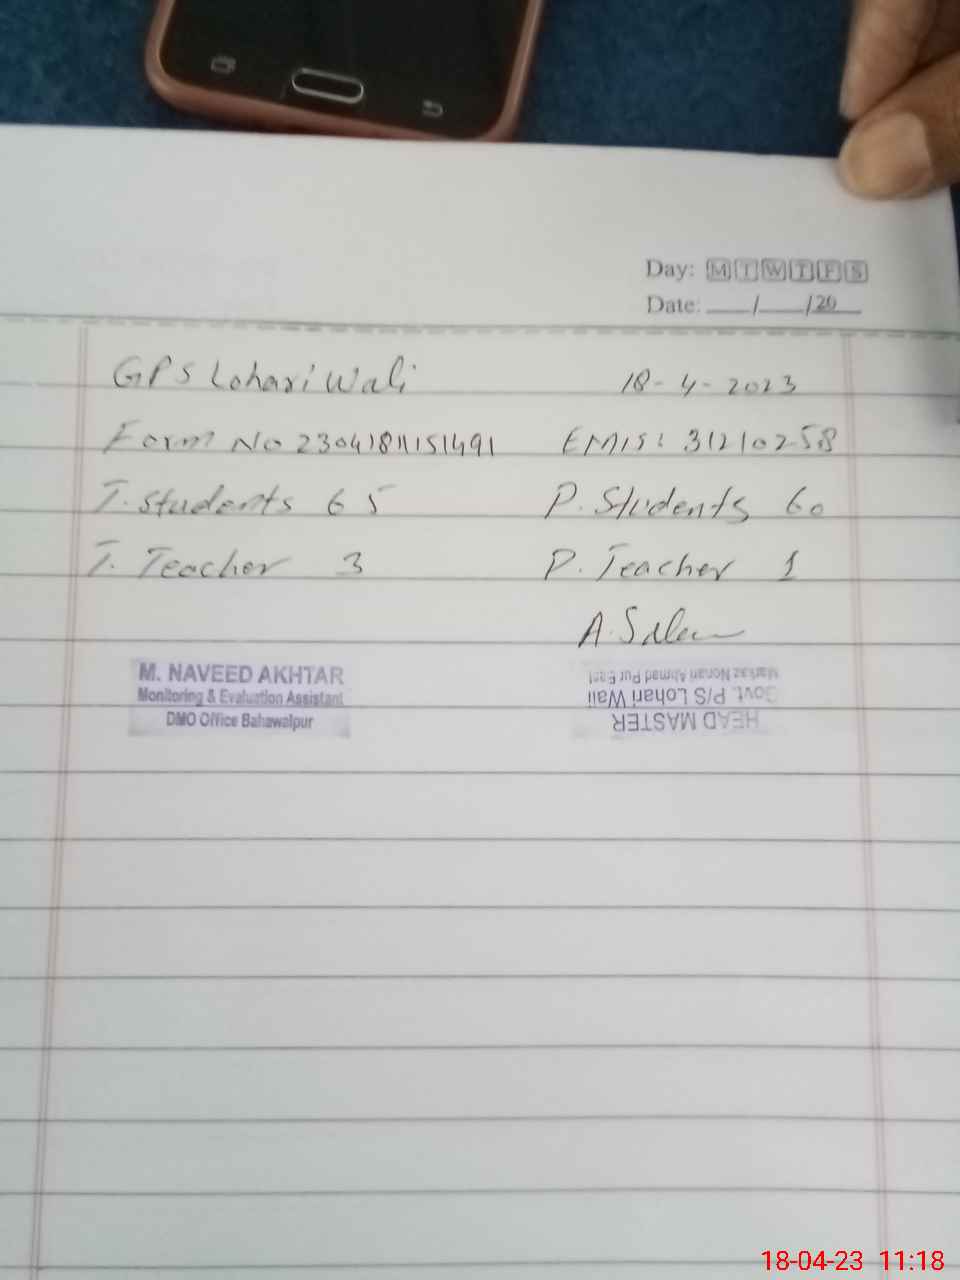 Day: M T W T F S
Date: ___/___/20___
GPS Lohari Wali 18-4-2023
Form No 23041811151491 EMIS: 31210258
T. Students 65 P. Students 60
T. Teacher 3 P. Teacher 1
M. NAVEED AKHTAR
Monitoring & Evaluation Assistant
DMO Office Bahawalpur
HEAD MASTER
Govt. P/S Lohari Wali
Markaz Nonari Ahmad Pur East
18-04-23 11:18